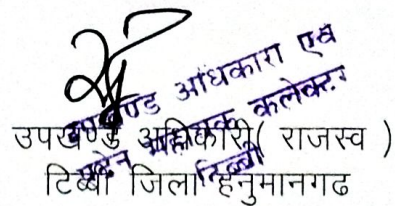 उपखण्ड अधिकारी एवं
पदेन सहायक कलेक्टर
टिब्बी
उपखण्ड अधिकारी( राजस्व )
टिब्बी जिला हनुमानगढ